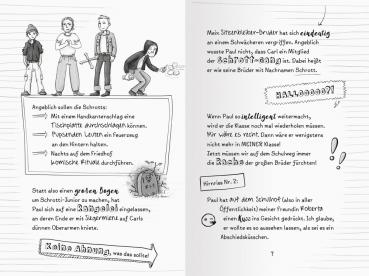 Angeblich sollen die Schrotts:
Mit einem Handkantenschlag eine
Tischplatte durchschlagen können.
Pupsenden Leuten ein Feuerzeug
an den Hintern halten.
Nachts auf dem Friedhof
komische Rituale durchführen.
Statt also einen großen Bogen
um Schrotti-Junior zu machen, hat
Paul sich auf eine Rangelei eingelassen,
an deren Ende er mit Siegermiene auf Carls
dünnen Oberarmen kniete.
Keine Ahnung, was das sollte!
Mein Sitzenbleiber-Bruder hat sich eindeutig
an einem Schwächeren vergriffen. Angeblich
wusste Paul nicht, dass Carl ein Mitglied
der Schrott-Gang ist. Dabei heißt
er wie seine Brüder mit Nachnamen Schrott.
HALLOOOOO?!
Wenn Paul so intelligent weitermacht,
wird er die Klasse noch mal wiederholen müssen.
Mir wäre es recht. Dann wäre er wenigstens
nicht mehr in MEINER Klasse!
Jetzt müssen wir auf dem Schulweg immer
die Rache der großen Brüder fürchten!
Hirnriss Nr. 2:
Paul hat auf dem Schulhof (also in aller
Öffentlichkeit) meiner Freundin Roberta
einen Kuss ins Gesicht gedrückt. Ich glaube,
er wollte es so aussehen lassen, als sei es ein
Abschiedsküsschen.
7